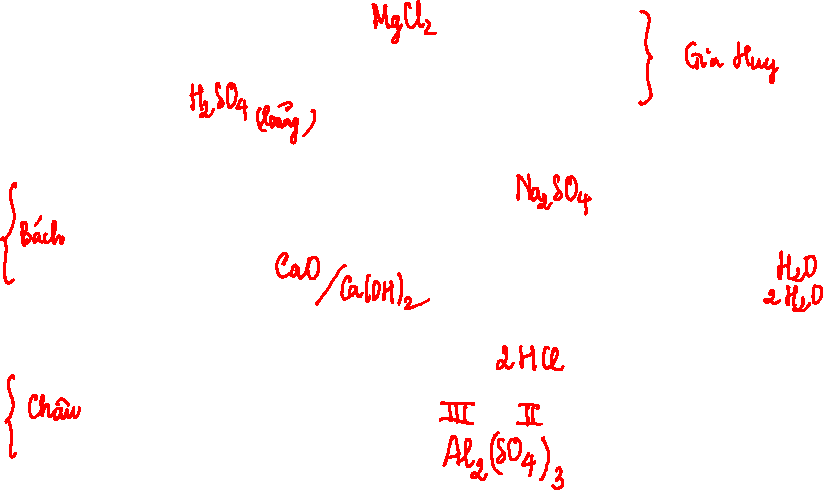 MgCl₂
Gia Huy
H₂SO₄ (loãng)
Na₂SO₄
Bách
CaO / Ca(OH)₂
H₂O
2 H₂O
2 HCl
Châu
III II
Al₂(SO₄)₃